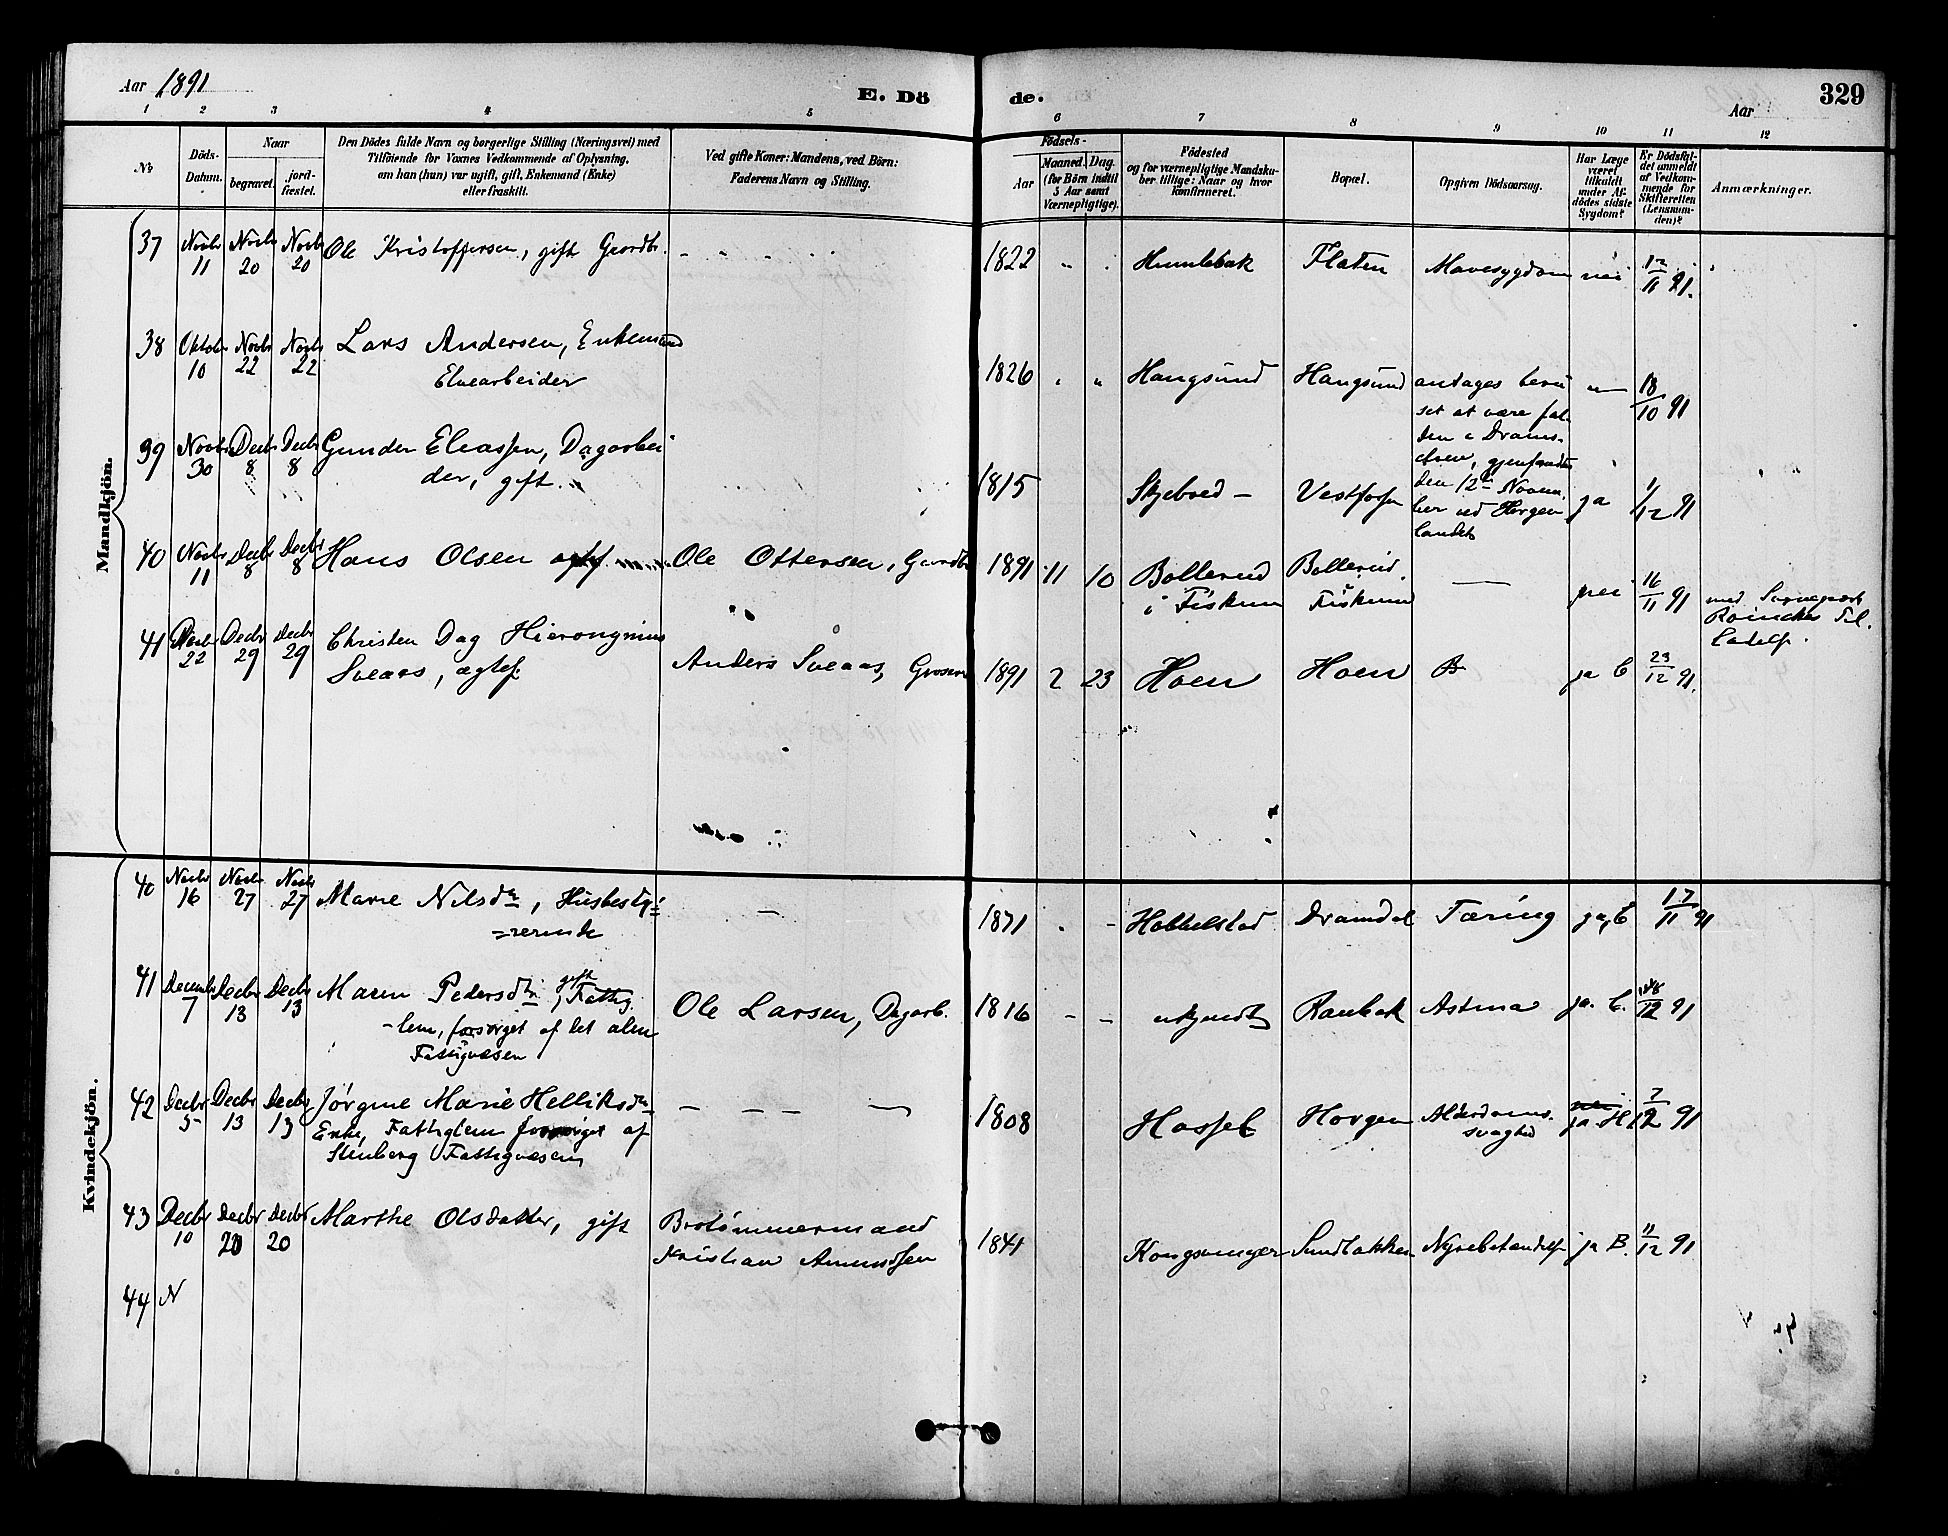 Aar 1891
E. Dö
de.
Aar
329
1 2 3 4 5 6 7 8 9 10 11 12
No
Döds-
Datum.
Naar
begravet.
jord-
fæstet.
Den Dödes fulde Navn og borgerlige Stilling (Næringsvei) med
Tilföiende for Voxnes Vedkommende af Oplysning,
om han (hun) var ugift, gift, Enkemand (Enke)
eller fraskilt.
Ved gifte Koner: Mandens, ved Börn:
Faderens Navn og Stilling.
Födsels-
Aar
Maaned. Dag.
(for Börn indtil
5 Aar samt
Værnepligtige).
Födested
og for værnepligtige Mandsku-
ber tillige: Naar og hvor
konfirmeret.
Bopæl.
Opgiven Dödsaarsag.
Har Læge
været
tilkaldt
under Af-
dödes sidste
Sygdom?
Er Dödsfal-
det anmeldt
af Vedkom-
mende for
Skifteretten
(Lensman-
den)?
Anmærkninger.
Mandkjön.
37 Novbr 11 Novbr 20 Novbr 20 Ole Kristoffersen, gift Gaardbr. 1822 Humlebæk Flaten Mavesygdom nei 12/11 91.
38 Oktobr 10 Novbr 22 Novbr 22 Lars Andersen, Enkemand
Elvearbeider
1826 Haugsund Haugsund antages beru
set at være fal
den i Drams-
elven, gjenfandtes
den 12te Novem
ber ved Horgen
landet
18/10 91
39 Novbr 30 Decbr 8 Decbr 8 Gunder Eliassen, Dagarbei
der, gift.
1815 Skjebred - Vestfossen ja 1/12 91
40 Novbr 11 Decbr 8 Decbr 8 Hans Olsen Ole Ottersen, Gaardbr 1891 11 10 Bollerud
i Fiskum
Bollerud.
Fiskum
nei 16/11 91 med Sogneprest
Reinckes Til
ladelse.
41 Decbr 22 Decbr 29 Decbr 29 Christen Dag Hieronymus
Sveaas, ægtef.
Anders Sveaas, 1891 2 23 Hoen Hoen ja C 23/12 91.
Kvindekjön.
40 Novbr 16 Novbr 27 Novbr 27 Marie Nilsdtr, Husbesty-
=rerinde
1871 Hobbelstad Dramdal Tæring ja, C 17/11 91
41 Decembr 7 Decbr 13 Decbr 13 Maren Pedersdtr, gift Fattig
-lem, forsørget af det alm
Fattigvæsen
Ole Larsen, Dagarb. 1816 ukjendt Raubæk Astma ja. C. 12 91
42 Decbr 5 Decbr 13 Decbr 13 Jørgine Marie Helliksdtr
Enke, Fattiglem forsørget af
Stenberg Fattigvæsen
1808 Hassel Horgen Alderdoms-
svaghed
ja H 7/12 91
43 Decbr 10 Decbr 20 Decbr 20 Marthe Olsdatter, gift Brotømmermand
Kristian Amundsen
1841 Kongsvinger Sundbakken Nyrebetændelse ja B. 11/12 91
44 N